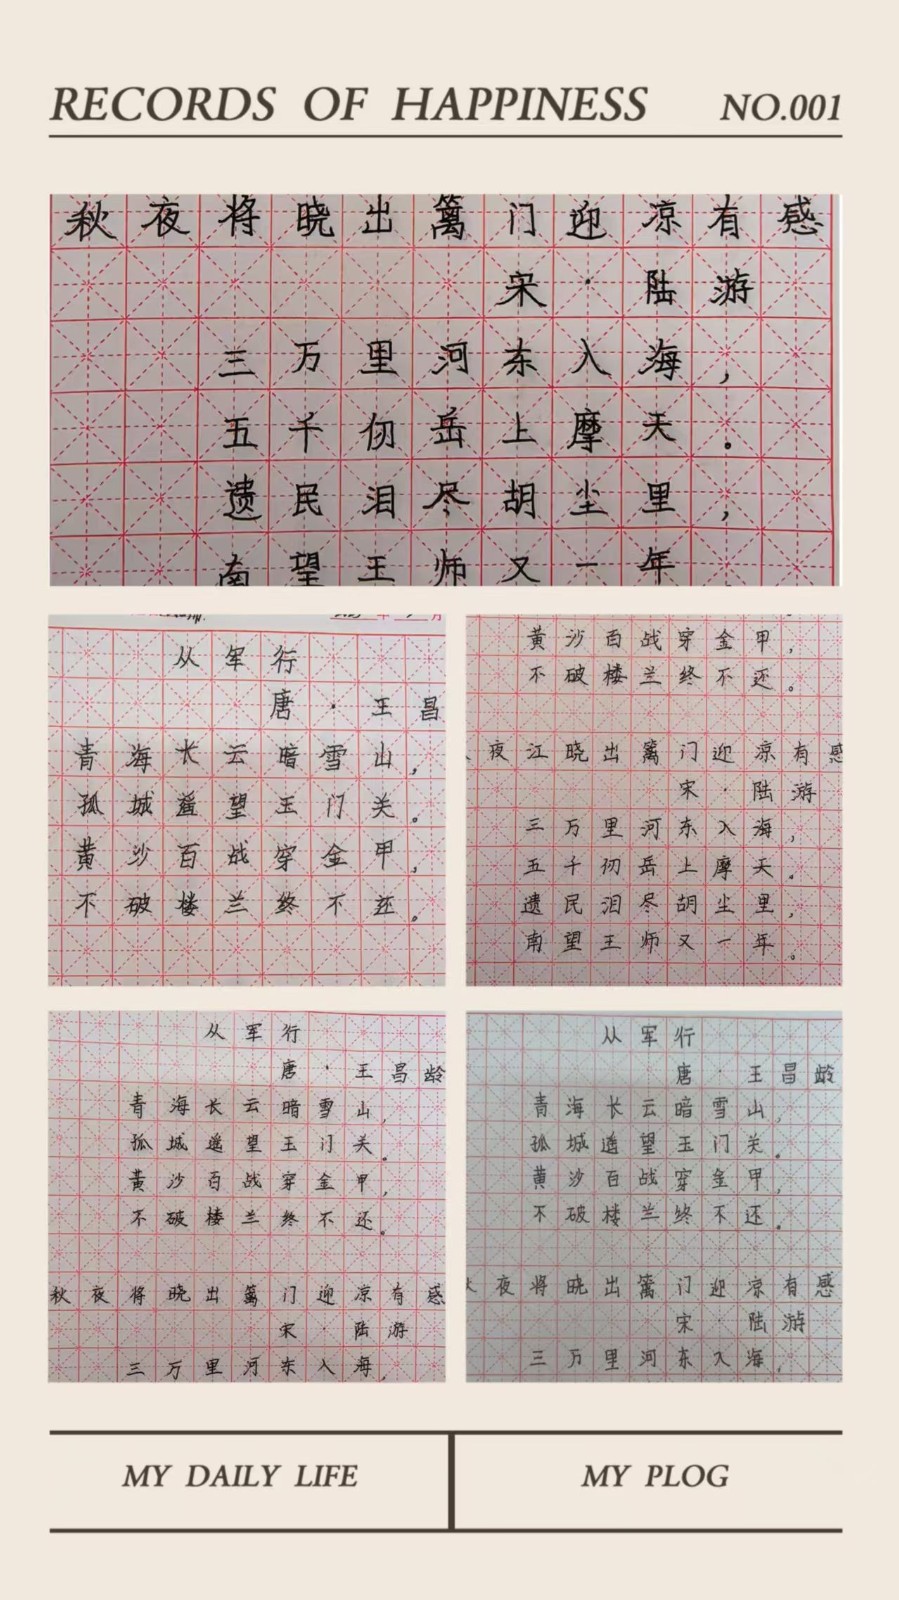 RECORDS OF HAPPINESS NO.001
秋夜将晓出篱门迎凉有感
宋·陆游
三万里河东入海，
五千仞岳上摩天。
遗民泪尽胡尘里，
南望王师又一年
从军行
唐·王昌
青海长云暗雪山，
孤城遥望玉门关。
黄沙百战穿金甲，
不破楼兰终不还。
黄沙百战穿金甲，
不破楼兰终不还。
夜江晓出篱门迎凉有感
宋·陆游
三万里河东入海，
五千仞岳上摩天。
遗民泪尽胡尘里，
南望王师又一年。
从军行
唐·王昌龄
青海长云暗雪山，
孤城遥望玉门关。
黄沙百战穿金甲，
不破楼兰终不还。
秋夜将晓出篱门迎凉有感
宋·陆游
三万里河东入海，
从军行
唐·王昌龄
青海长云暗雪山，
孤城遥望玉门关。
黄沙百战穿金甲，
不破楼兰终不还。
夜将晓出篱门迎凉有感
宋·陆游
三万里河东入海，
MY DAILY LIFE
MY PLOG